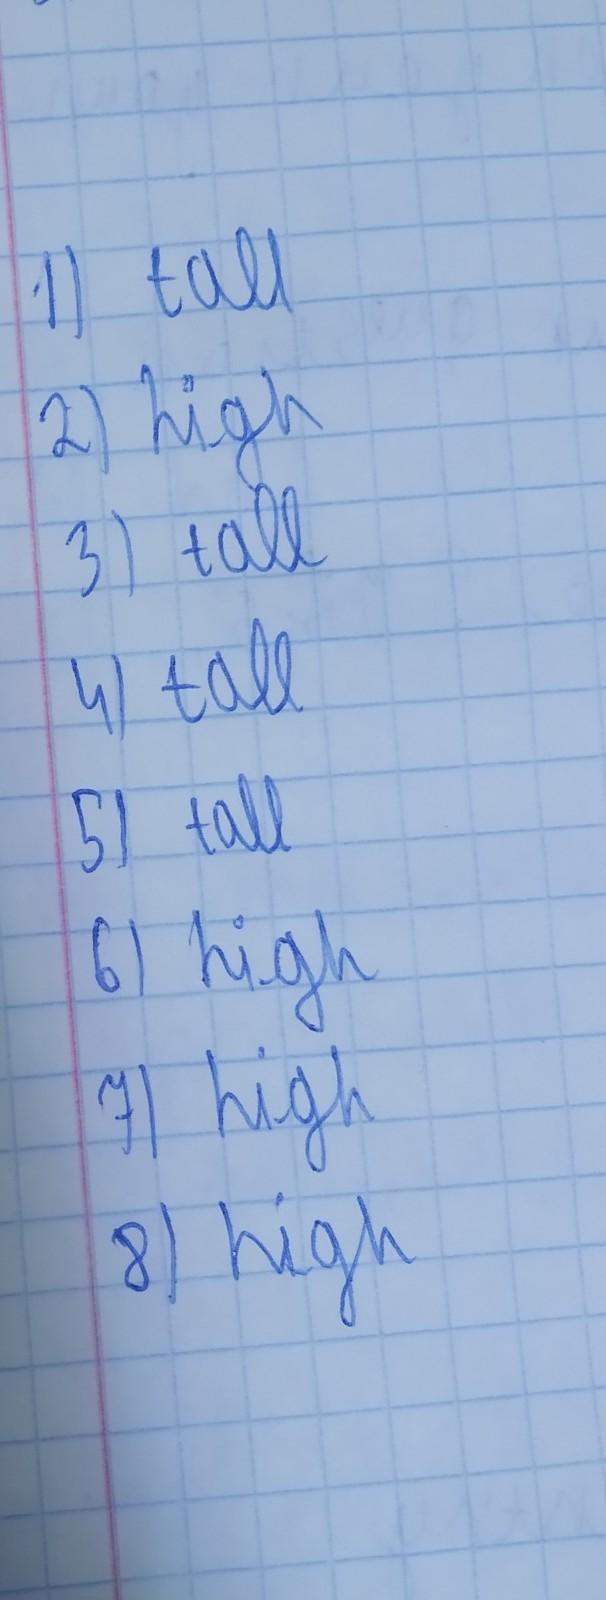 1) tall
2) high
3) tall
4) tall
5) tall
6) high
7) high
8) high